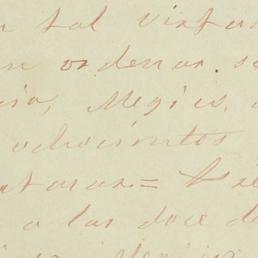 n tal virtu
en ordenar. s
cia, Megico,
ochocientos
turas = Fi
a las doce d